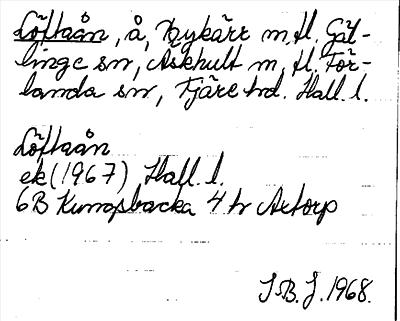 Löftaån, å, Bykärr m.fl. Gäl-
linge sn, Äskhult m.fl. För-
landa sn, Fjäre hd. Hall. l.
Löftaån
ek (1967) Hall. l.
6B Kungsbacka 4 h Axtorp
S.B.J. 1968.